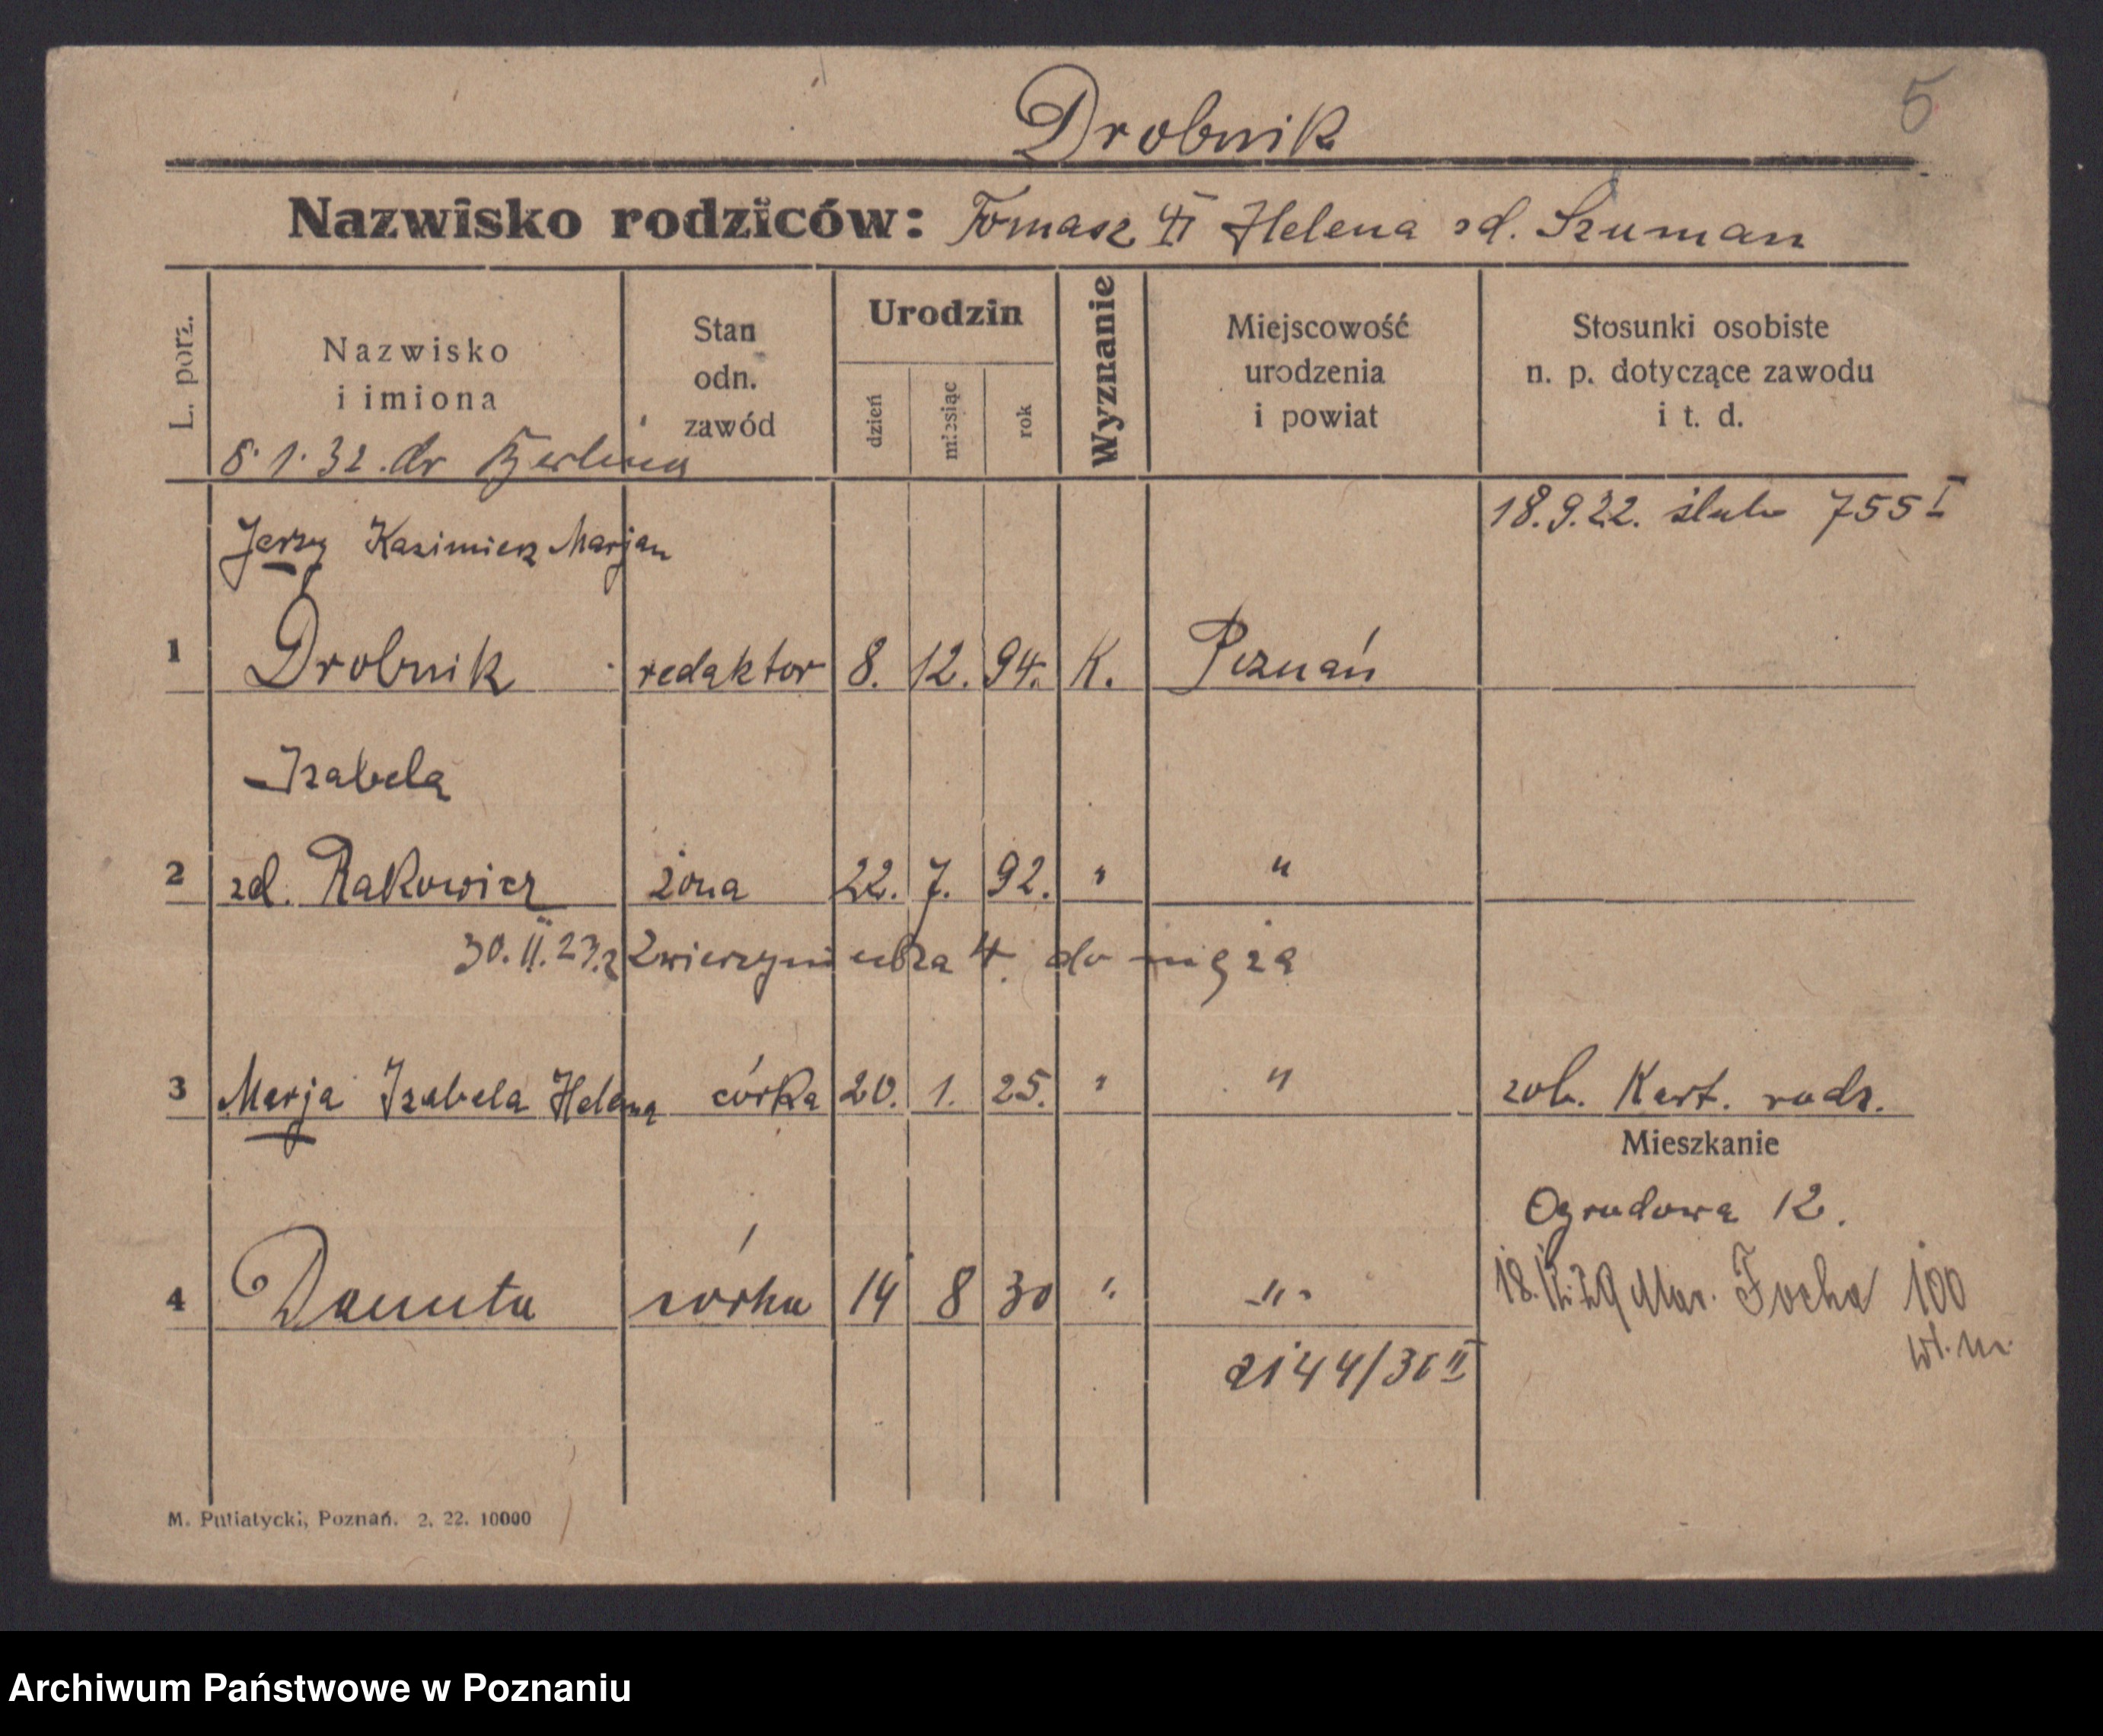 5
Drobnik
Nazwisko rodziców: Tomasz Helena zd. Szuman
L. porz.
Nazwisko
i imiona
Stan
odn.
zawód
Urodzin
dzień
miesiąc
rok
Wyznanie
Miejscowość
urodzenia
i powiat
Stosunki osobiste
n. p. dotyczące zawodu
i t. d.
8.1.32. do Berlina
18.9.22. ślub 755 I
Jerzy Kazimierz Marjan
1 Drobnik redaktor 8. 12. 94. K. Poznań
Izabela
2 zd. Rakowicz żona 22. 7. 92. " "
30.II.23. z Zwierzyniecka 4. do męża
3 Marja Izabela Helena córka 20. 1. 25. " " zob. Kart. rodz.
Mieszkanie
Ogrodowa 12.
4 Danuta córka 14 8 30 " -"-
18. 29 Mar. Focha 100
wł. m.
2144/30 II
M. Putiatycki, Poznań. 2. 22. 10000
Archiwum Państwowe w Poznaniu